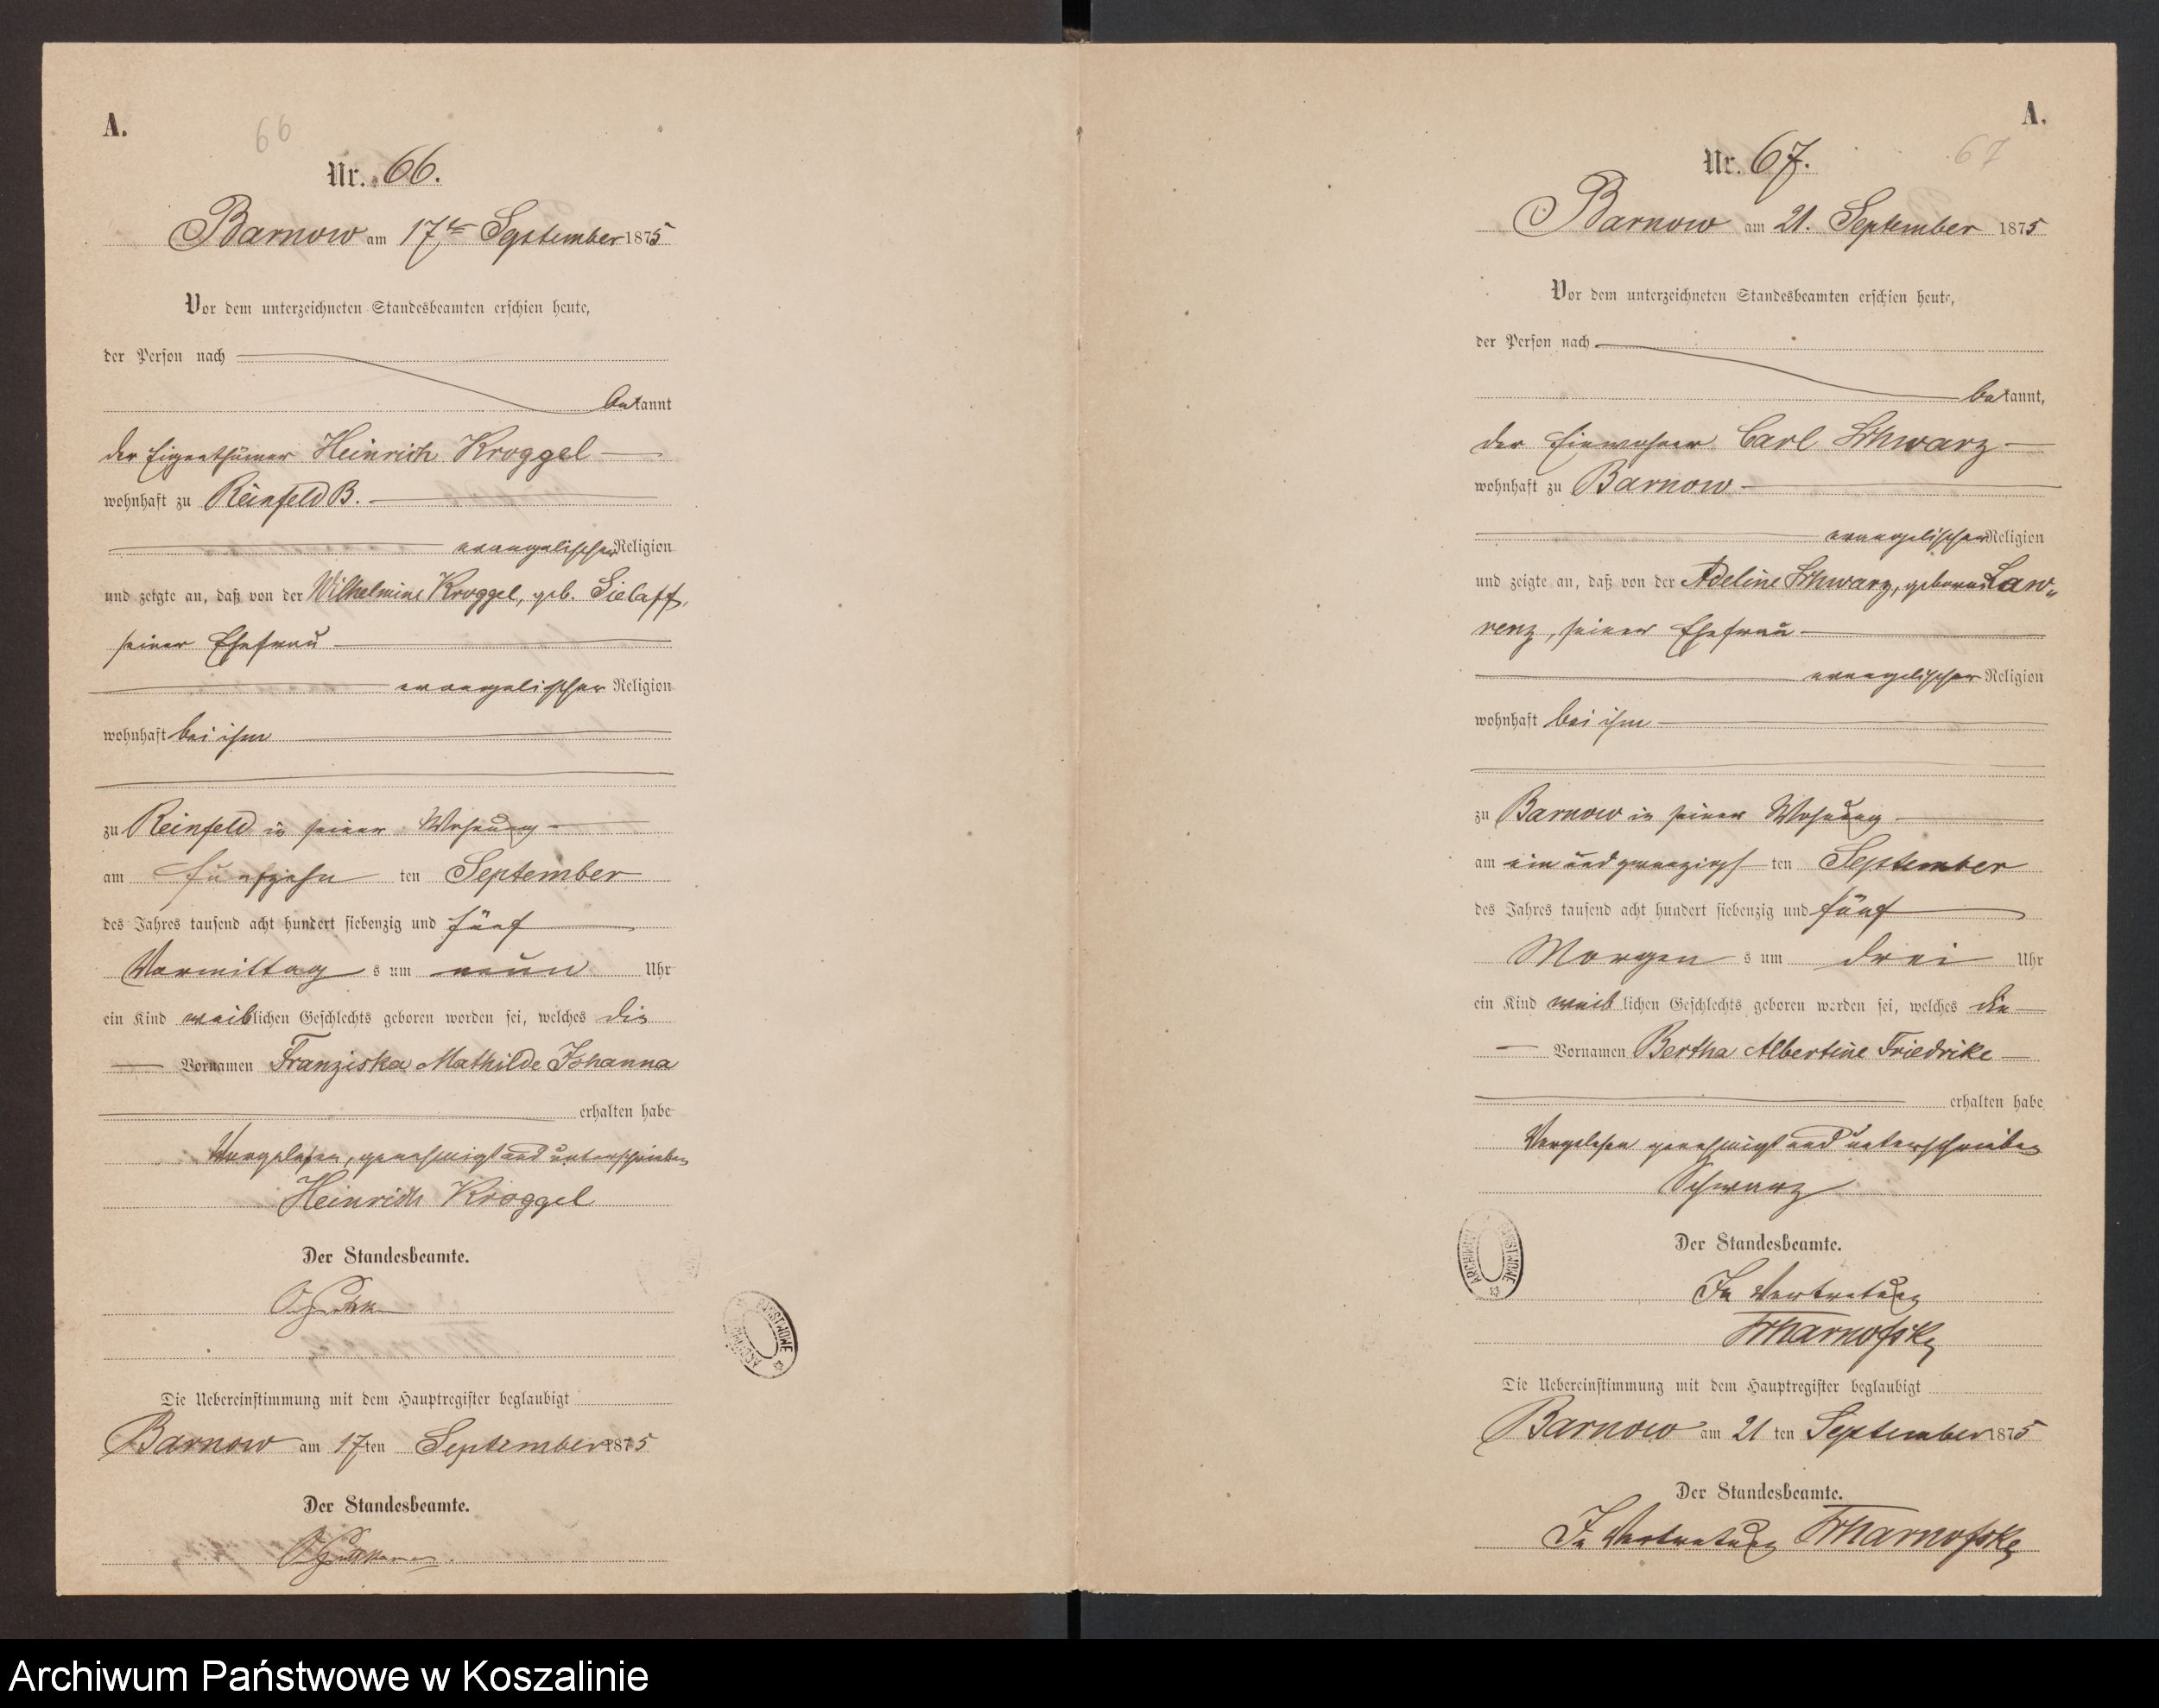 A.
66
Nr. 66.
Barnow am 17ten September 1875
Vor dem unterzeichneten Standesbeamten erschien heute,
der Person nach
bekannt
der Eigenthümer Heinrich Kroggel
wohnhaft zu Reinfeld B.
evangelischer Religion
und zeigte an, daß von der Wilhelmine Kroggel, geb. Sielaff,
seiner Ehefrau
evangelischer Religion
wohnhaft bei ihm
zu Reinfeld in seiner Wohnung
am fünfzehn ten September
des Jahres tausend acht hundert siebenzig und fünf
Vormittag s um neun Uhr
ein Kind weiblichen Geschlechts geboren worden sei, welches die
Vornamen Franziska Mathilde Johanna
erhalten habe
Vorgelesen, genehmigt und unterschrieben
Heinrich Kroggel
Der Standesbeamte.
Die Uebereinstimmung mit dem Hauptregister beglaubigt
Barnow am 17ten September 1875
Der Standesbeamte.
ARCHIWUM PAŃSTWOWE
A.
67
Nr. 67.
Barnow am 21. September 1875
Vor dem unterzeichneten Standesbeamten erschien heute,
der Person nach
bekannt,
der Einwohner Carl Schwarz
wohnhaft zu Barnow
evangelischer Religion
und zeigte an, daß von der Adeline Schwarz, geborne Law„
renz, seiner Ehefrau
evangelischer Religion
wohnhaft bei ihm
zu Barnow in seiner Wohnung
am ein und zwanzigst ten September
des Jahres tausend acht hundert siebenzig und fünf
Morgen s um drei Uhr
ein Kind weib lichen Geschlechts geboren worden sei, welches die
Vornamen Bertha Albertine Friedrike
erhalten habe
Vorgelesen genehmigt und unterschrieben
Schwarz
Der Standesbeamte.
In Vertretung
Die Uebereinstimmung mit dem Hauptregister beglaubigt
Barnow am 21 ten September 1875
Der Standesbeamte.
In Vertretung
ARCHIWUM PAŃSTWOWE
Archiwum Państwowe w Koszalinie